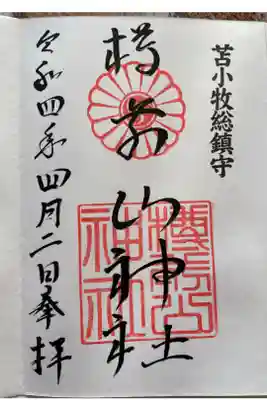 苫小牧総鎮守
樽前山神社
令和四年四月二日奉拝
樽前山
神社